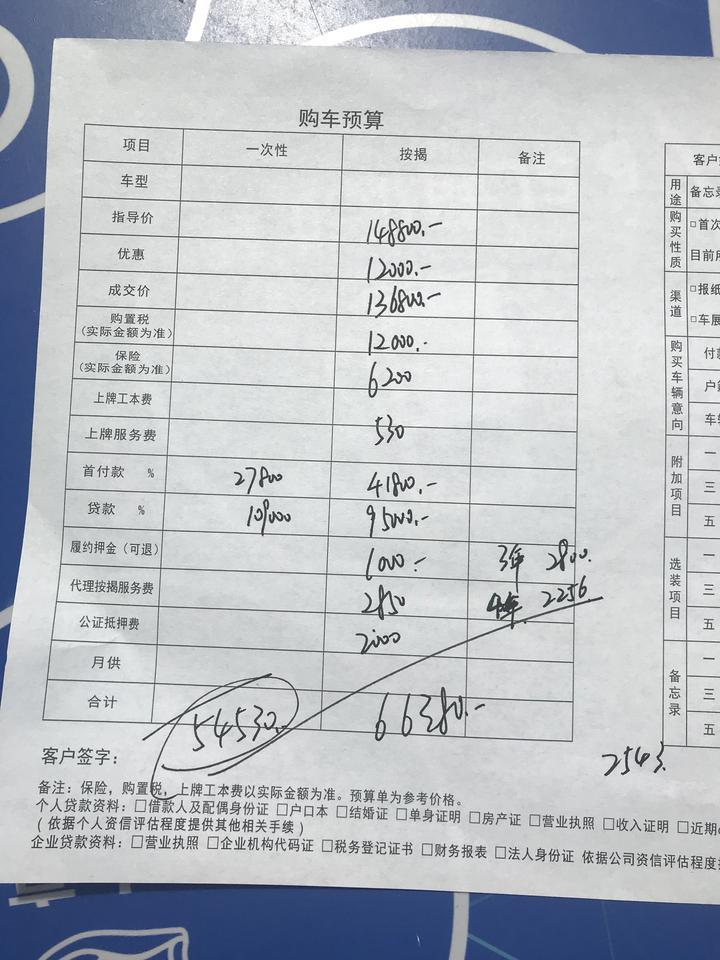 购车预算
项目 一次性 按揭 备注
车型
指导价 148800.-
优惠 12000.-
成交价 136800.-
购置税
(实际金额为准) 12000.-
保险
(实际金额为准) 6200
上牌工本费
上牌服务费 530
首付款 % 27800 41800.-
贷款 % 109000 95000.-
履约押金(可退) 1000.- 3年 2800.
代理按揭服务费 2850 4年 2256.
公证抵押费 2000
月供
合计 54530.- 66380.-
客户签字:
2543.
备注:保险,购置税,上牌工本费以实际金额为准。预算单为参考价格。
个人贷款资料:□借款人及配偶身份证 □户口本 □结婚证 □单身证明 □房产证 □营业执照 □收入证明 □近期
(依据个人资信评估程度提供其他相关手续)
企业贷款资料:□营业执照 □企业机构代码证 □税务登记证书 □财务报表 □法人身份证 依据公司资信评估程度
客户
用途 备忘录
购买性质 □首次
目前
渠道 □报纸
□车展
购买车辆意向 付款
户
车辆
附加项目 一
三
五
选装项目 一
三
五
备忘录 一
三
五